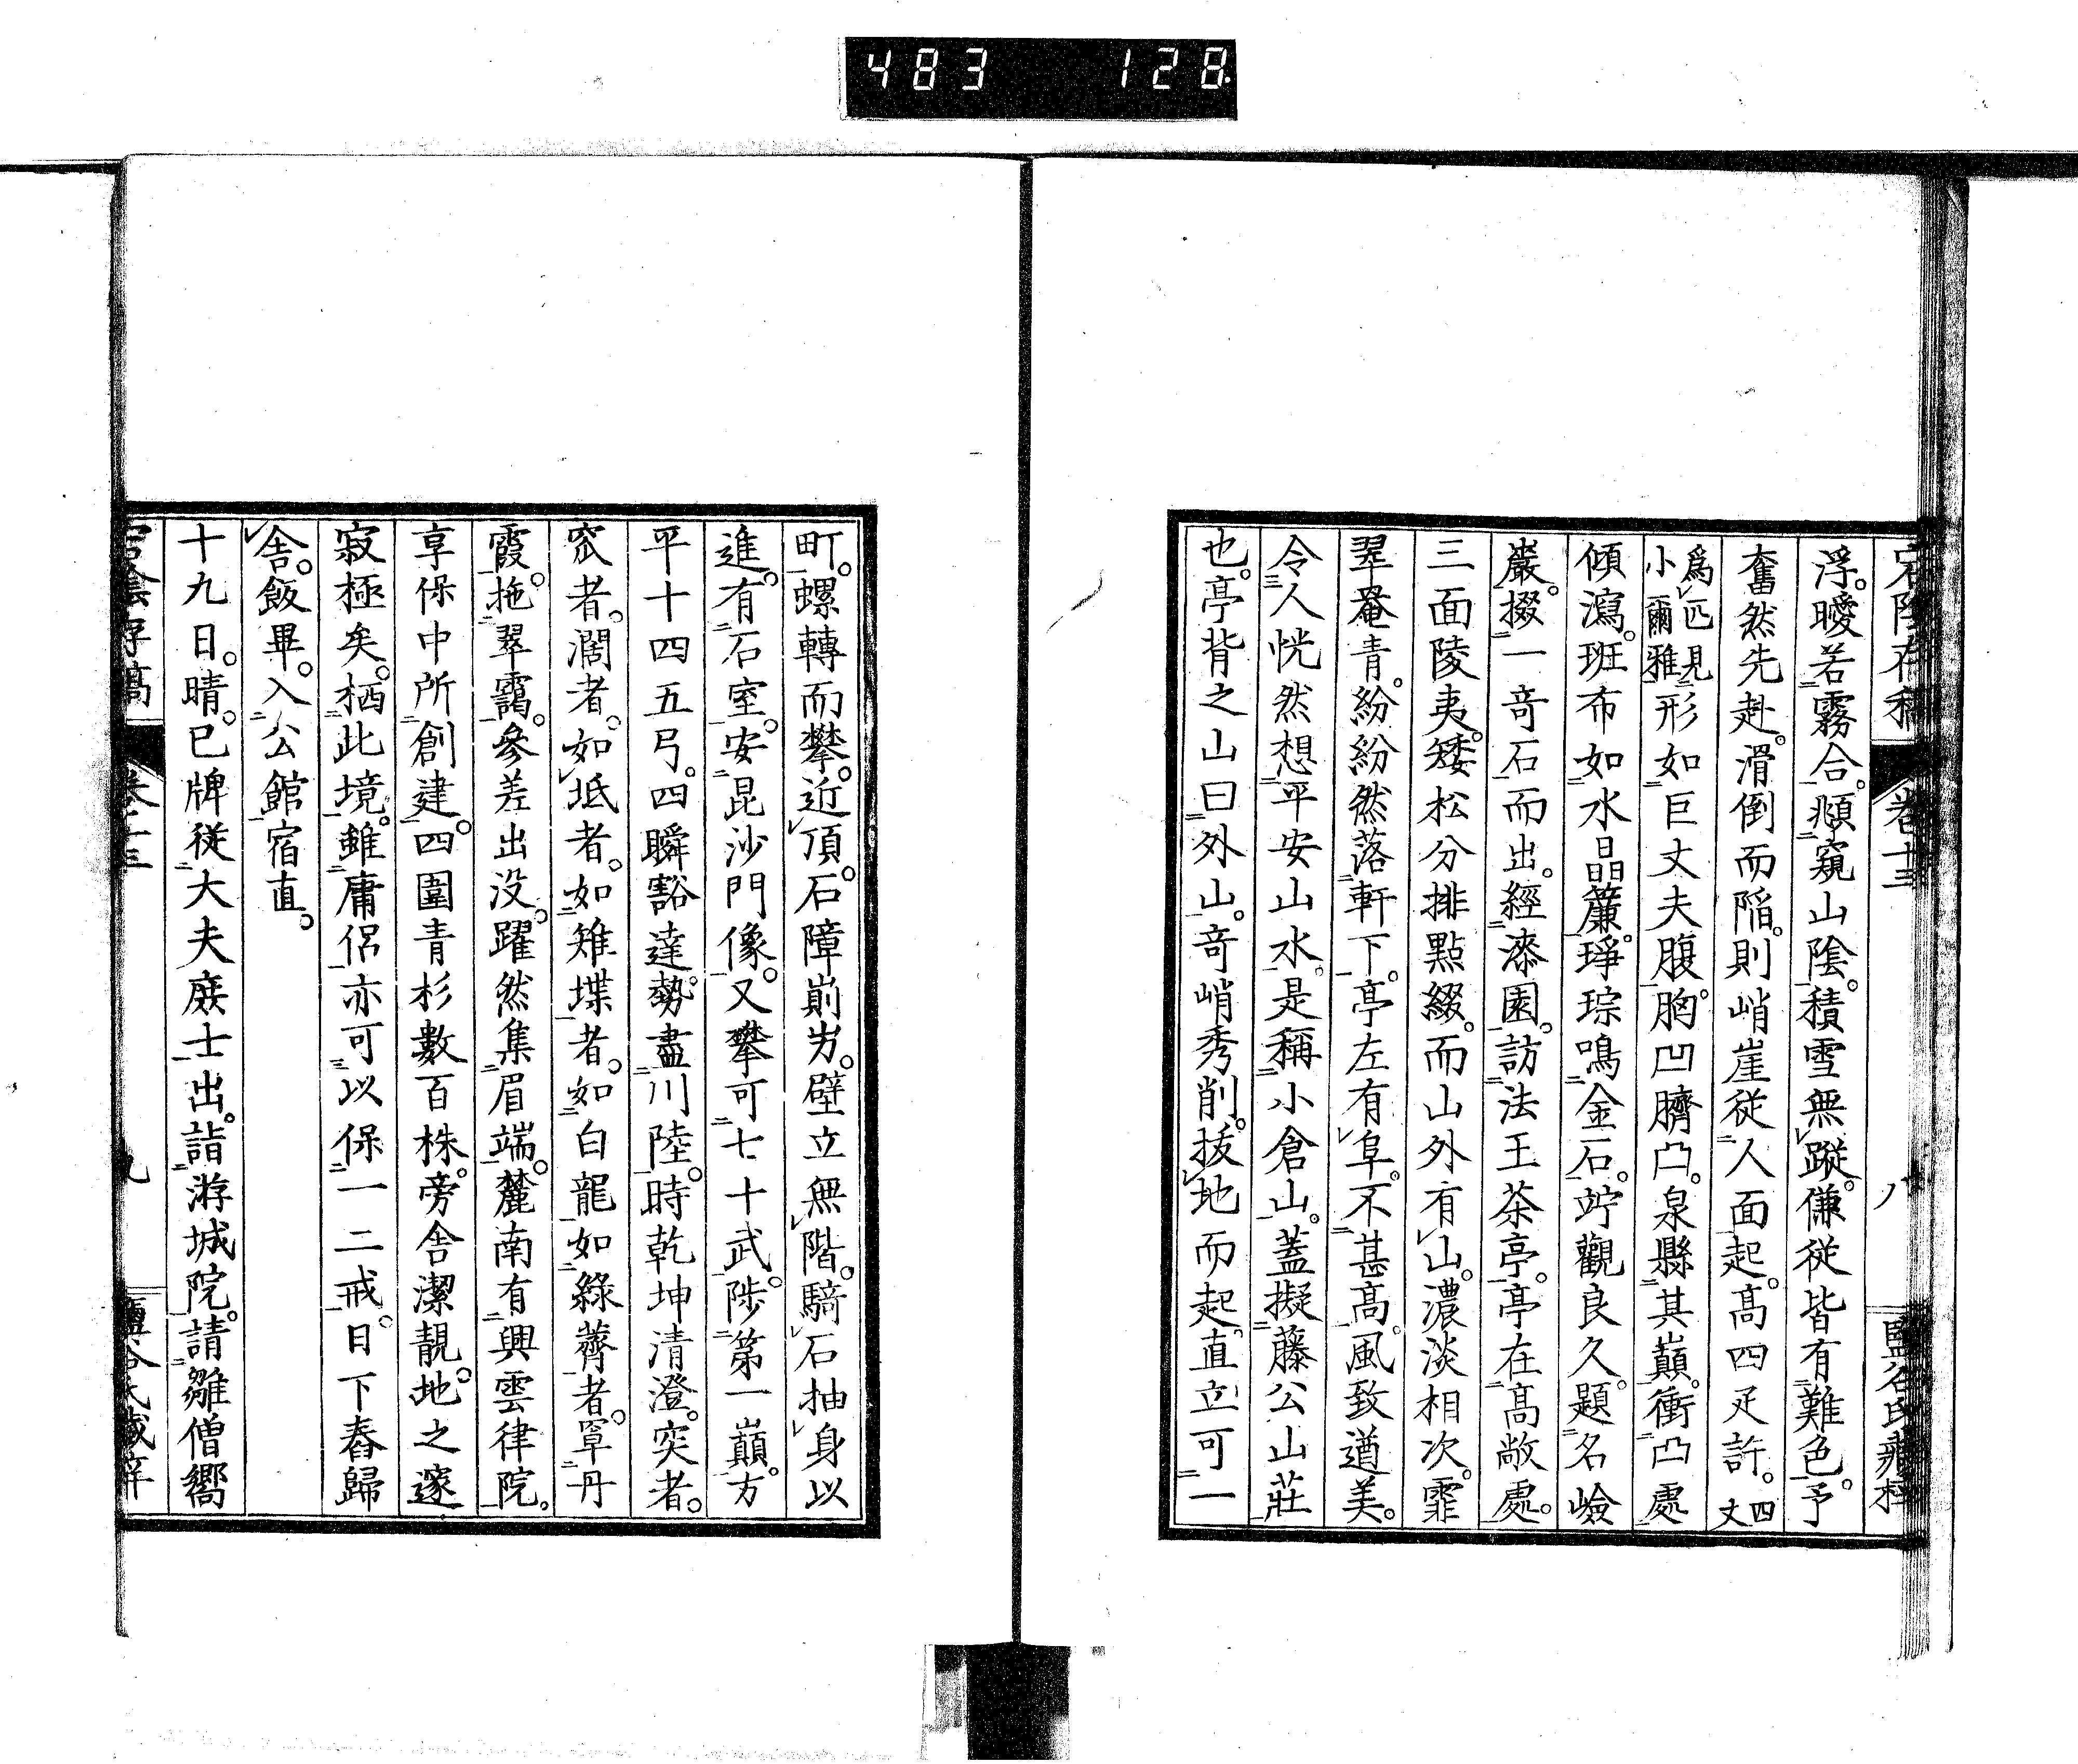 483 128
宕陰存稿 卷十三 八
浮。曖若霧合。頫窺山陰。積雪無蹤。傔從皆有難色。予
奮然先赴。滑倒而陷。則峭崖從人面起。高四疋許。四丈
爲匹見小爾雅形如巨丈夫腹。胸凹臍凸。泉縣其巔。衝凸處
傾瀉。班布如水晶簾。琤琮鳴金石。竚觀良久。題名嶮
巖。掇一奇石而出。經漆園。訪法王茶亭。亭在高敞處。
三面陵夷。矮松分排點綴。而山外有山。濃淡相次。霏
翠罨青。紛紛然落軒下。亭左有阜。不甚高。風致遒美。
令人恍然想平安山水。是稱小倉山。蓋擬藤公山莊
也。亭背之山曰外山。奇峭秀削。拔地而起。直立可一
町。螺轉而攀。近頂。石障崱屴。壁立無階。騎石抽身以
進。有石室。安昆沙門像。又攀可七十武。陟第一巔。方
平十四五弓。四瞬豁達。勢盡川陸。時乾坤清澄。突者。
窊者。濶者。如坻者。如雉堞者。如白龍如綠薺者。罩丹
霞。拖翠靄。參差出没。躍然集眉端。麓南有興雲律院。
享保中所創建。四圍青杉數百株。旁舎潔靚。地之邃
寂極矣。栖此境。雖庸侶亦可以保一二戒。日下舂歸
舎。飯畢。入公館宿直。
十九日。晴。巳牌從大夫廢士出。詣游城院。請雛僧嚮
卷十三 九